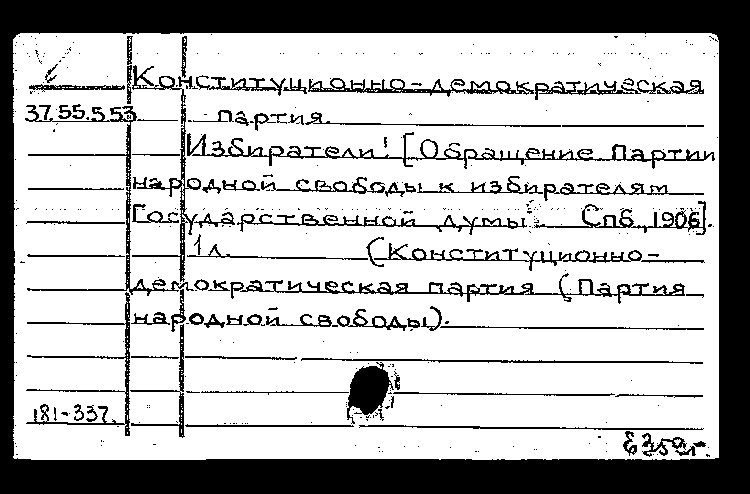 Конституционно-демократическая
37.55.5.53 партия.
Избиратели! [Обращение Партии
народной свободы к избирателям
Государственной думы. Спб., 1906].
1 л. (Конституционно-
демократическая партия (Партия
народной свободы).
181-337.